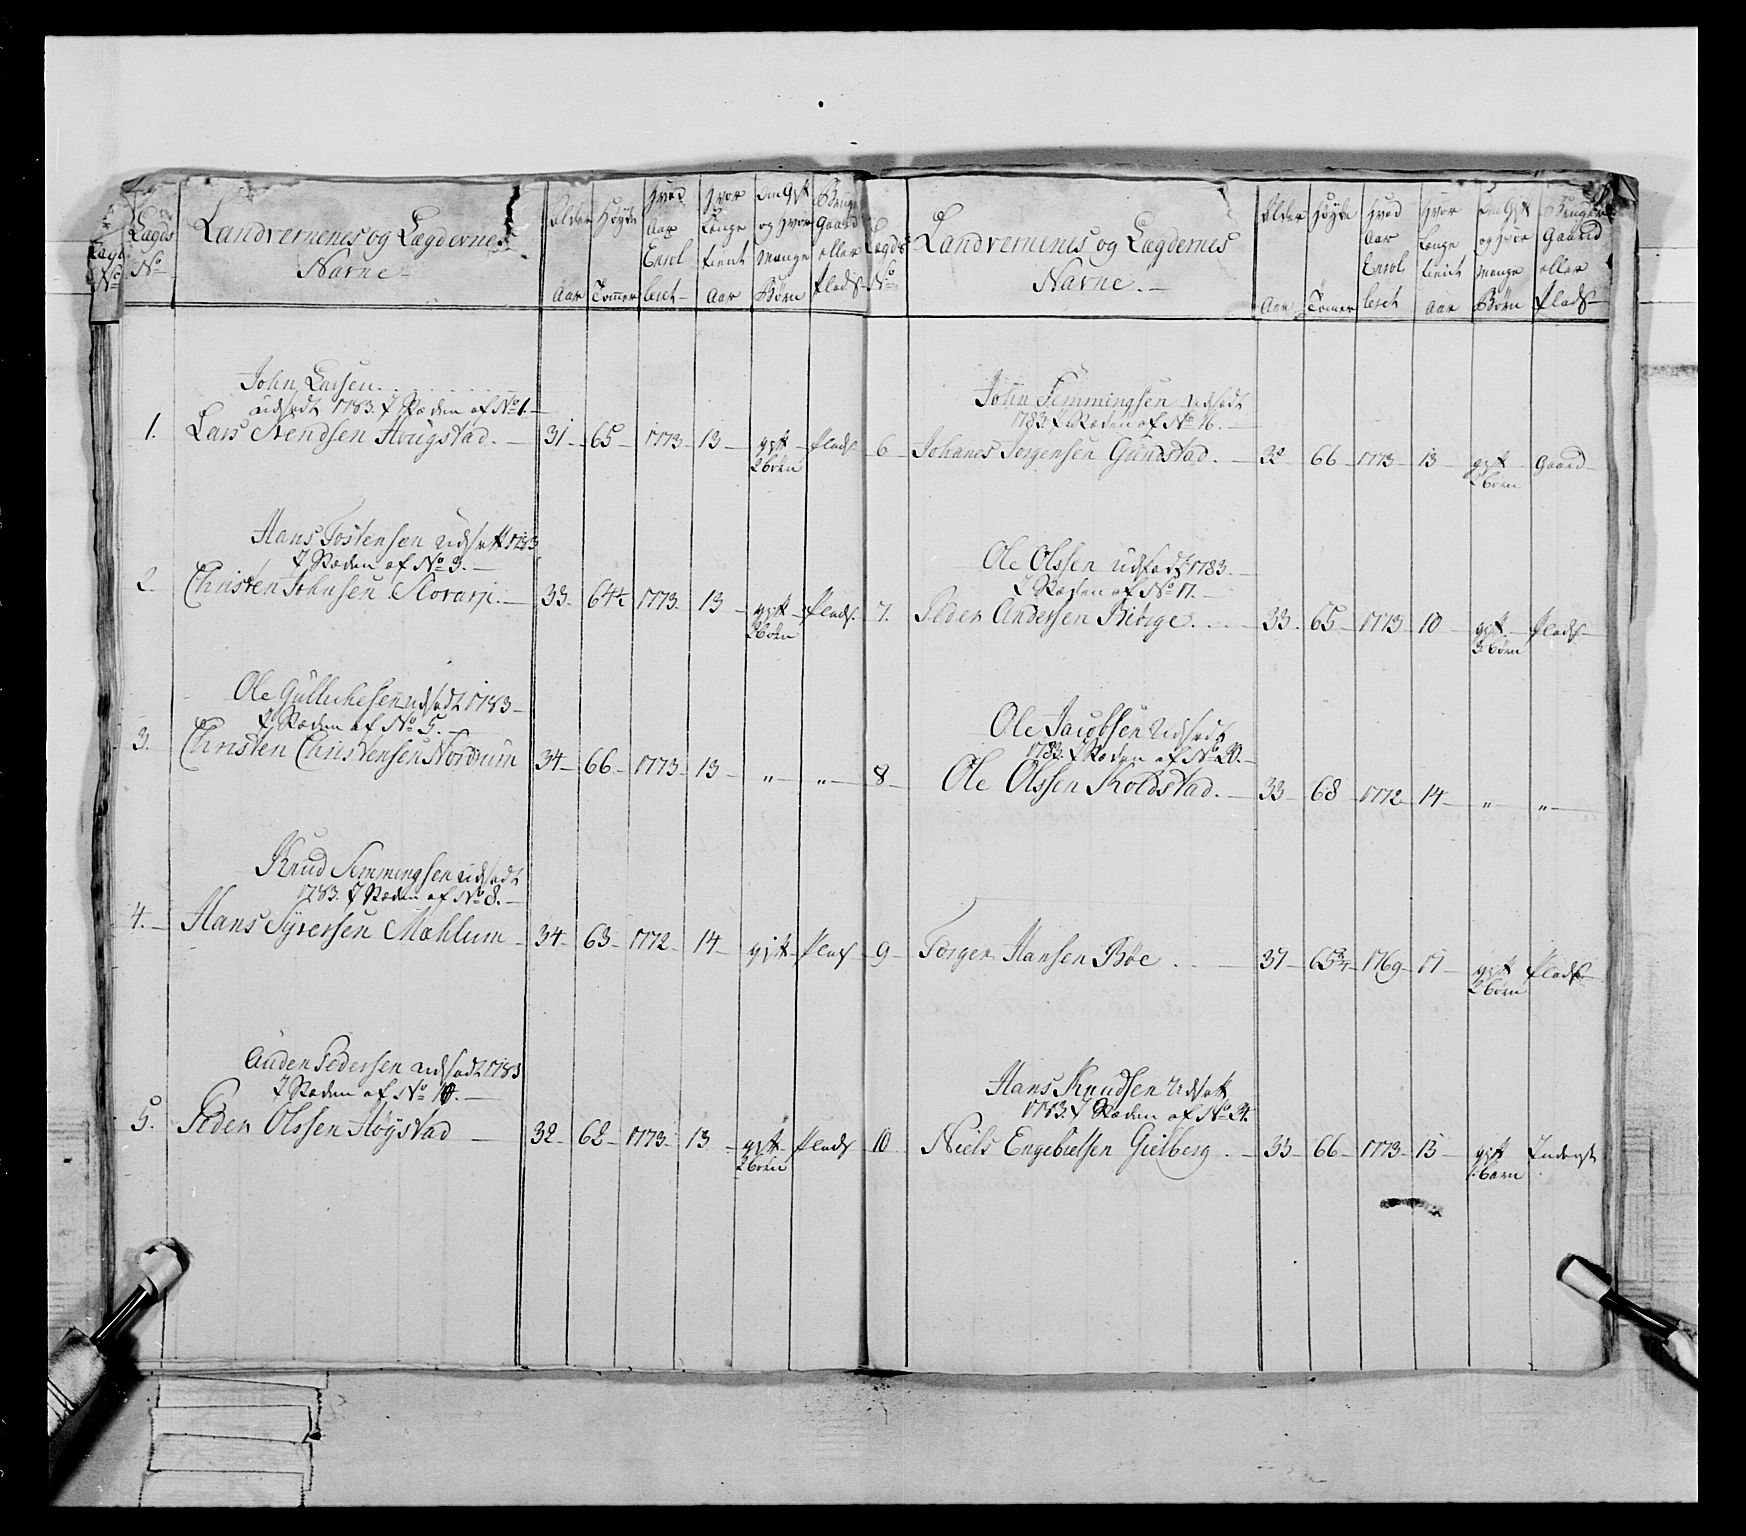 Lægds No
Landvernenes og Lægdernes Navne
Alder Aar
Høyde Tommer
Hvad Aar Enrolleret
Hvor Længe tient Aar
Om Gift og Hvor Mange Børn
Bruger Gaard eller Plads
John Larsen
udsadt 1783. I Stæden af No 1.
1. Lars Svendsen Haugstad. 31 65 1773 13 gift Plads
2 børn
Hans Tostensen udsatt 1783
I Stæden af No 3.
2. Christen Johnsen 33 64½ 1773 13 gift Plads.
2 børn
Ole Gullichsen udsadt 1783
I Stæden af No 5.
3. Christen Christensen Nordrum 34 66 1773 13 " "
Knud Semmingsen udsadt
1783. I Stæden af No 8.
4. Hans Syversen Mæhlum 34 63 1772 14 gift Plads
Auden Pedersen udsadt 1783
I Stæden af No
5. Peder Olssen Høystad 32 62 1773 13 gift Plads
2 børn
Lægds No
Landvernenes og Lægdernes Navne.
Alder Aar
Høyde Tommer
Hvad Aar Enrolleret
Hvor Længe tient Aar
Om Gift og Hvor Mange Børn
Bruger Gaard eller Plads
John Semmingsen udsadt
1783. I Stæden af No 16.
6 Johanes Jorgensen Gundstad. 32 66 1773 13 gift Gaard
2 børn
Ole Olssen udsadt 1783.
I Stæden af No 17.
7. Peder Andersen Biørge. 33 65 1773 10 gift Plads
3 børn
Ole Jacobsen Udsadt
1783. I Stæden af No 20.
8 Ole Olssen Koldstad. 33 68 1772 14 " "
9 Torger Hansen Bøe 37 65¾ 1769 17 gift Plads
2 børn
Hans Knudsen Udsatt
1783. I Stæden af No 24.
10 Niels Engebretsen Gielberg 33 66 1773 13 gift Inderst
1 barn